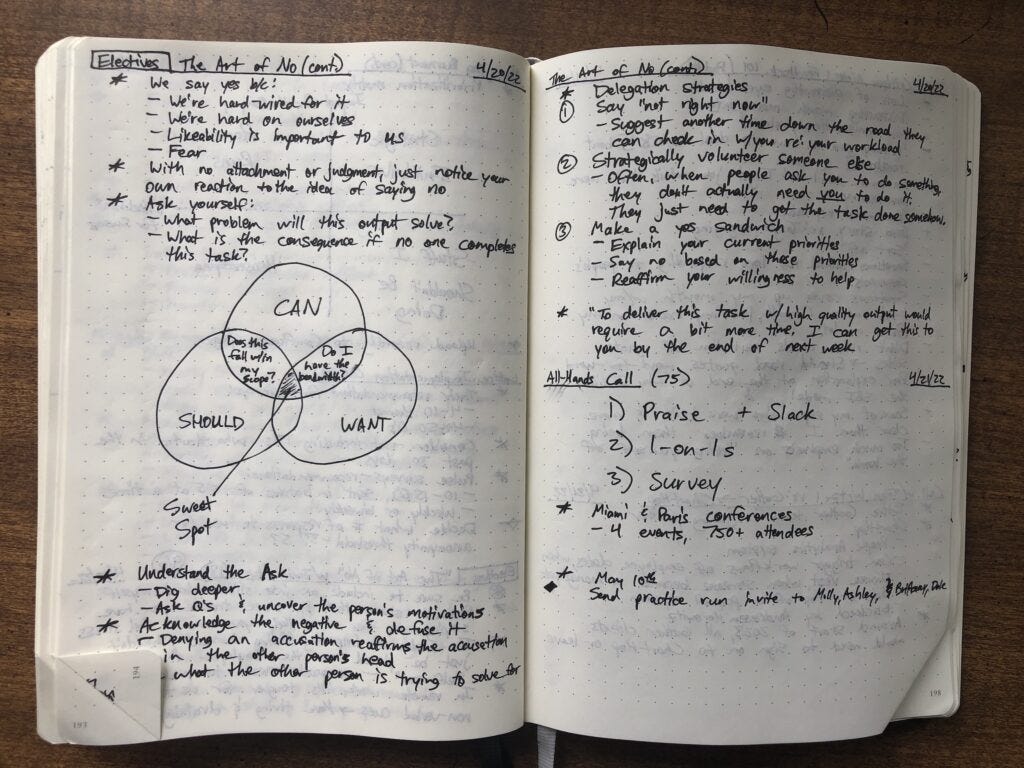 Electives The Art of No (cont.) 4/20/22
* We say yes b/c:
– We're hard-wired for it
– We're hard on ourselves
– Likeability is important to us
– Fear
* With no attachment or judgment, just notice your
own reaction to the idea of saying no
* Ask yourself:
– What problem will this output solve?
– What is the consequence if no one completes
this task?
CAN
Does this
fall w/in
my
scope?
Do I
have the
bandwidth?
SHOULD
WANT
Sweet
Spot
* Understand the Ask
– Dig deeper
– Ask Q's & uncover the person's motivations
* Acknowledge the negative & defuse it
– Denying an accusation reaffirms the accusation
in the other person's head
– what the other person is trying to solve for
194
193
The Art of No (cont.) 4/20/22
* Delegation strategies
① Say "not right now"
– Suggest another time down the road they
can check in w/you re: your workload
② Strategically volunteer someone else
– Often, when people ask you to do something,
they don't actually need you to do it.
They just need to get the task done somehow.
③ Make a yes sandwich
– Explain your current priorities
– Say no based on those priorities
– Reaffirm your willingness to help
* "To deliver this task w/ high quality output would
require a bit more time, I can get this to
you by the end of next week
All-Hands Call (75) 4/21/22
1) Praise + Slack
2) 1-on-1s
3) Survey
* Miami & Paris conferences
– 4 events, 750+ attendees
* May 10th
◆ Send practice run invite to Molly, Ashley, &
198